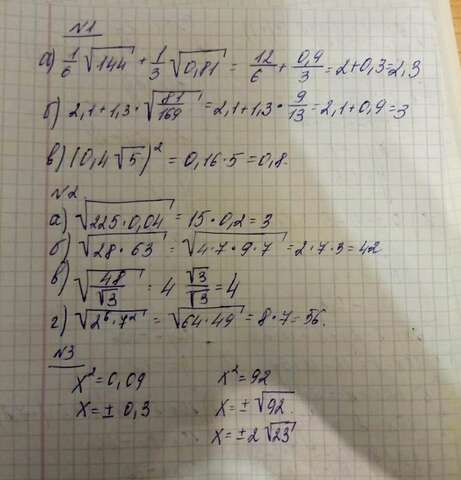 N1
а) 1/6 √144 + 1/3 √0,81 = 12/6 + 0,9/3 = 2+0,3=2,3
б) 2,1+1,3·√81/169 = 2,1+1,3·9/13 = 2,1+0,9=3
в) (0,4√5)² = 0,16·5=0,8.
N2
а) √225·0,04 = 15·0,2=3
б) √28·63 = √4·7·9·7 = 2·7·3=42
в) √48/√3 = 4 √3/√3 = 4
г) √2⁶·7² = √64·49 = 8·7=56.
N3
x²=0,09 x²=92
x=±0,3 x=±√92.
x=±2√23